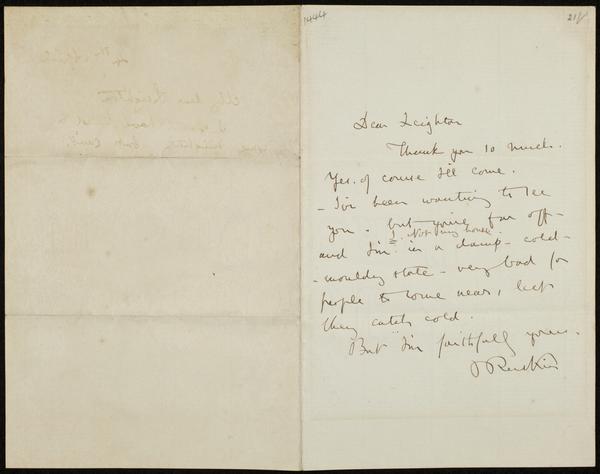 1444
21/
Dear Leighton
Thank you so much.
Yes. of course I'll come.
- I've been wanting to see
you. but you're far off -
I. Not my house.
and I'm in a damp - cold -
- mouldy state - very bad for
people to come near, lest
they catch cold.
But I'm faithfully yours.
J Ruskin